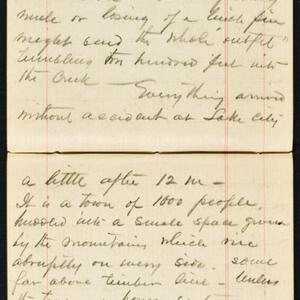 mule or losing of a linch pin
might send the whole "outfit"
tumbling ten hundred feet into
the Creek — Everything arrived
without accident at Lake City
a little after 12 M —
It is a town of 1000 people.
huddled into a small space given
by the mountains which rise
abruptly on every side. some
far above timber line —